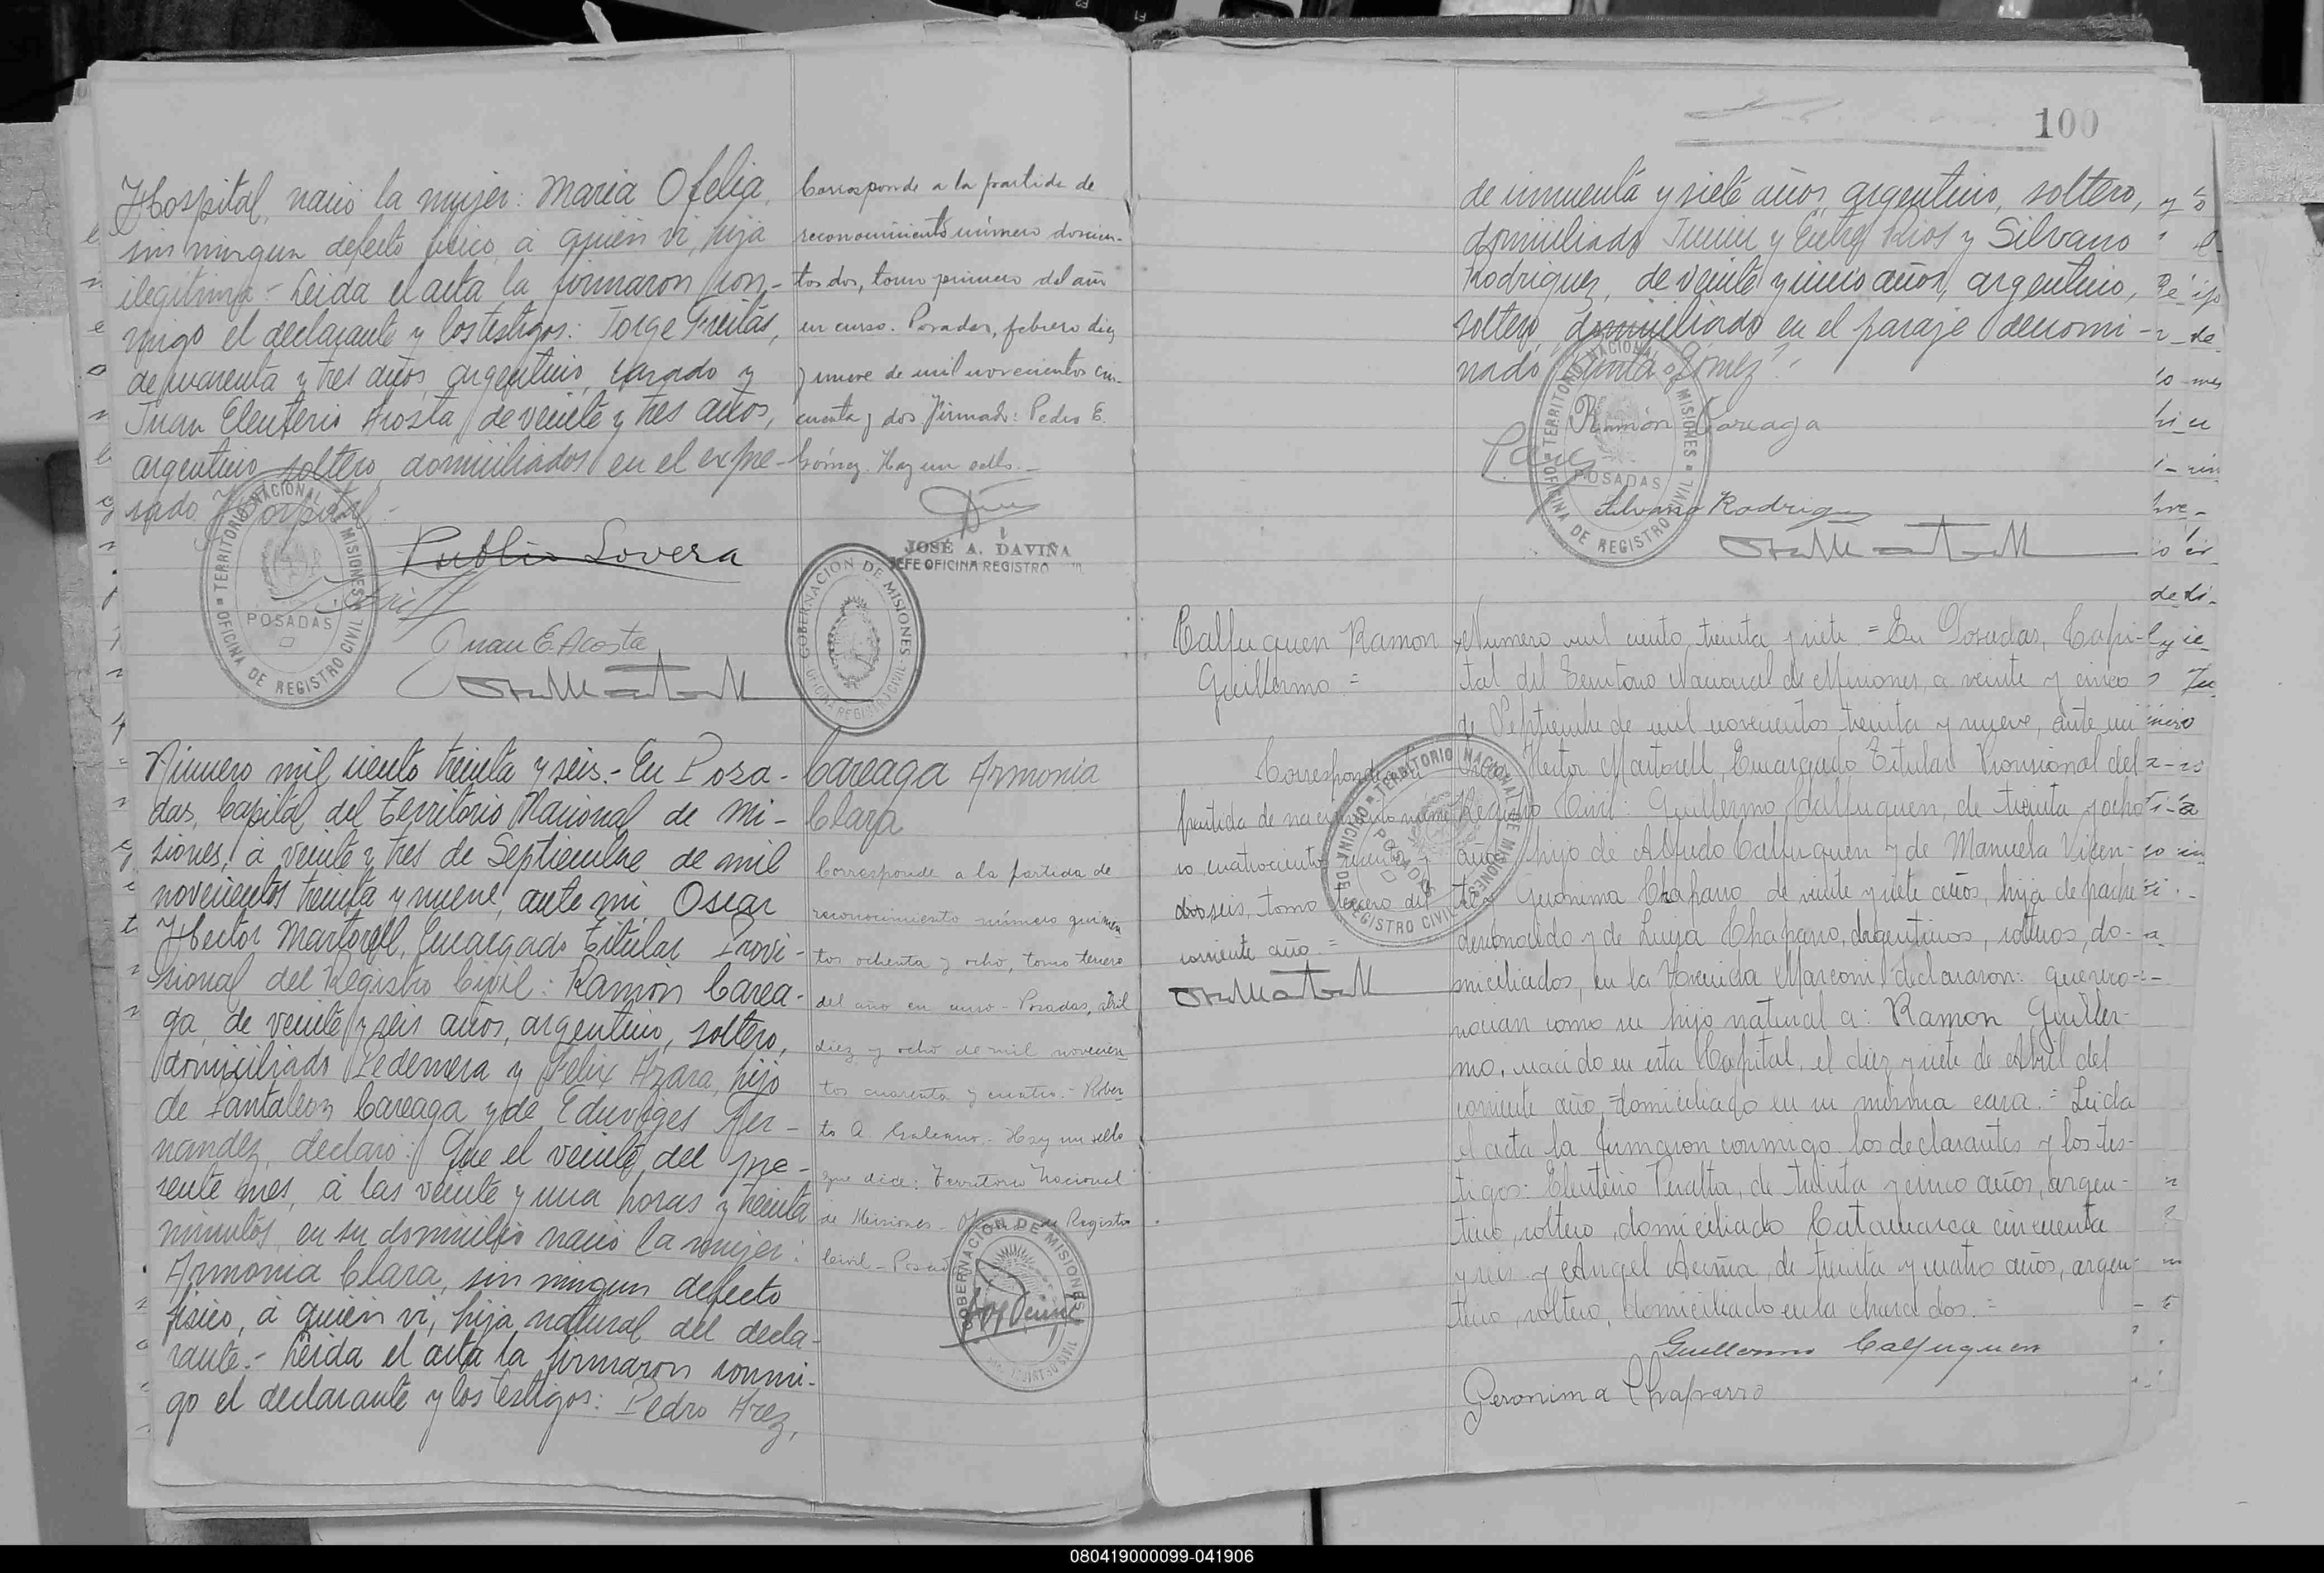 Hospital, nació la mujer: Maria Ofelia,
sin ningun defecto físico, á quién vi, hija
ilegítima.- Leida el acta la firmaron con-
migo el declarante y los testigos: Jorge Freitas,
de cuarenta y tres años, argentino, casado y
Juan Eleuterio Acosta, de veinte y tres años,
argentino, soltero, domiciliados en el expre-
sado Hospital.-
Publio Lovera
Juan E Acosta
TERRITORIO NACIONAL DE MISIONES
OFICINA DE REGISTRO CIVIL
POSADAS
Corresponde a la partida de
reconocimiento número doscien-
tos dos, tomo primero del año
en curso. Posadas, febrero diez
y nueve de mil novecientos cin-
cuenta y dos Firmado: Pedro E.
Gómez. Hay un sello.-
JOSÉ A. DAVIÑA
JEFE OFICINA REGISTRO
GOBERNACION DE MISIONES
OFICINA REGISTRO CIVIL
Número mil ciento treinta y seis.- En Posa-
das, Capital del Territorio Nacional de Mi-
siones, á veinte y tres de Septiembre de mil
novecientos treinta y nueve, ante mi Oscar
Hector Martorell, Encargado Titular Provi-
sional del Registro Civil: Ramón Carea-
ga, de veinte y seis años, argentino, soltero,
domiciliado Pedernera y Felix Azara, hijo
de Pantaleon Careaga y de Eduviges Fer-
nandez, declaró: Que el veinte del pre-
sente mes, á las veinte y una horas y treinta
minutos, en su domicilio nació la mujer:
Armonia Clara, sin ningun defecto
físico, á quién vi, hija natural del decla-
rante.- Leida el acta la firmaron conmi-
go el declarante y los testigos: Pedro Arez,
Careaga Armonia
Clara
Corresponde a la partida de
reconocimiento número quinien
tos ochenta y ocho, tomo tercero
del año en curso - Posadas, abril
diez y ocho de mil novecien
tos cuarenta y cuatro.- Rober
to A. Galeano.- Hay un sello
que dice: Territorio Nacional
de Misiones - Oficina de Registro
Civil - Posad
GOBERNACION DE MISIONES
100
de cincuenta y siete años, argentino, soltero,
domiciliado Junin y Entre Rios y Silvano
Rodriguez, de veinte y cinco años, argentino,
soltero, domiciliado en el paraje denomi-
nado "Gómez".-
Ramón Careaga
Silvano Rodriguez
TERRITORIO NACIONAL DE MISIONES
OFICINA DE REGISTRO CIVIL
POSADAS
Calfuquen Ramon
Guillermo =
Corresponde a la
partida de nacimiento núme
ro cuatrocientos
seis, tomo tercero del
corriente año. =
TERRITORIO NACIONAL DE MISIONES
OFICINA DE REGISTRO CIVIL
POSADAS
Numero mil ciento treinta y siete = En Posadas, Capi-
tal del Territorio Nacional de Misiones, a veinte y cinco
de Septiembre de mil novecientos treinta y nueve, ante mi
Oscar Hector Martorell, Encargado Titular Provisional del
Registro Civil: Guillermo Calfuquen, de treinta y ocho
años, hijo de Alfredo Calfuquen y de Manuela Vicen-
te y Geronima Chaparro, de veinte y siete años, hija de padre
desconocido y de Luisa Chaparro, argentinos, solteros, do-
miciliados, en la Avenida Marconi, declararon: que reco-
nocian como su hijo natural a: Ramon Guiller-
mo, nacido en esta Capital, el diez y siete de Abril del
corriente año, = domiciliado en su misma casa. = Leida
el acta la firmaron conmigo los declarantes y los tes-
tigos: Eleuterio Peralta, de treinta y cinco años, argen-
tino, soltero, domiciliado Catamarca cincuenta
y seis y Angel Acuña, de treinta y cuatro años, argen-
tino, soltero, domiciliado en la chacra dos. =
Guillermo Calfuquen
Geronima Chaparro
080419000099-041906